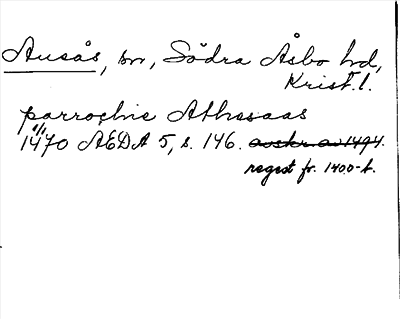 Ausås, sn, Södra Åsbo hd,
Krist. l.
parrochie Athssaas
1/1
1470 ÆDA 5, s. 146. avskr. av 1494.
regest fr. 1400-t.